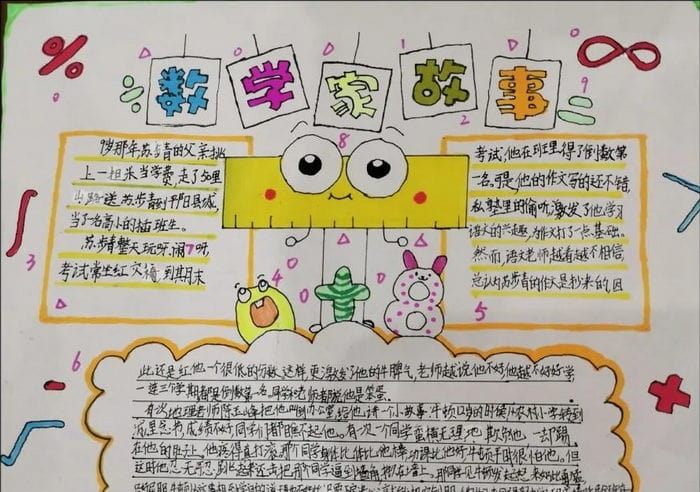 数学家故事
9岁那年苏步青的父亲挑
上一担米当学费,走了
出路送苏步青到平阳县城,
当了名高小的插班生。
苏步青整天玩呀,闹呀,
考试常坐红椅,到期末
考试,他在班里得了倒数第
一名。可是,他的作文写的还不错,
私塾里的偷听,激发了他学习
语文的兴趣,为作文打了一点基础。
然而,语文老师越看越不相信,
总认为苏步青的作文是抄来的,因
此还是红他一个很低的分数,这样更激发了他的牛脾气,老师越说他不好他越不好好学,
一连三个学期都是倒数第一名,同学和老师都说他是笨蛋。
有次地理老师陈玉峰把他叫到办公室,给他讲一个小故事:牛顿12岁的时候,从农村小学转到
城里念书,成绩不好,同学们都瞧不起他。有次一个同学蛮横无理地欺负他,一却踢
在他的肚子上,他疼得直打滚。那个同学身体比他棒,功课比他好,牛顿平时很怕他。但
这时他忍无可忍,跳起来还击,把那个同学逼到墙角,
3
8
1
2
9
4
0
6
5